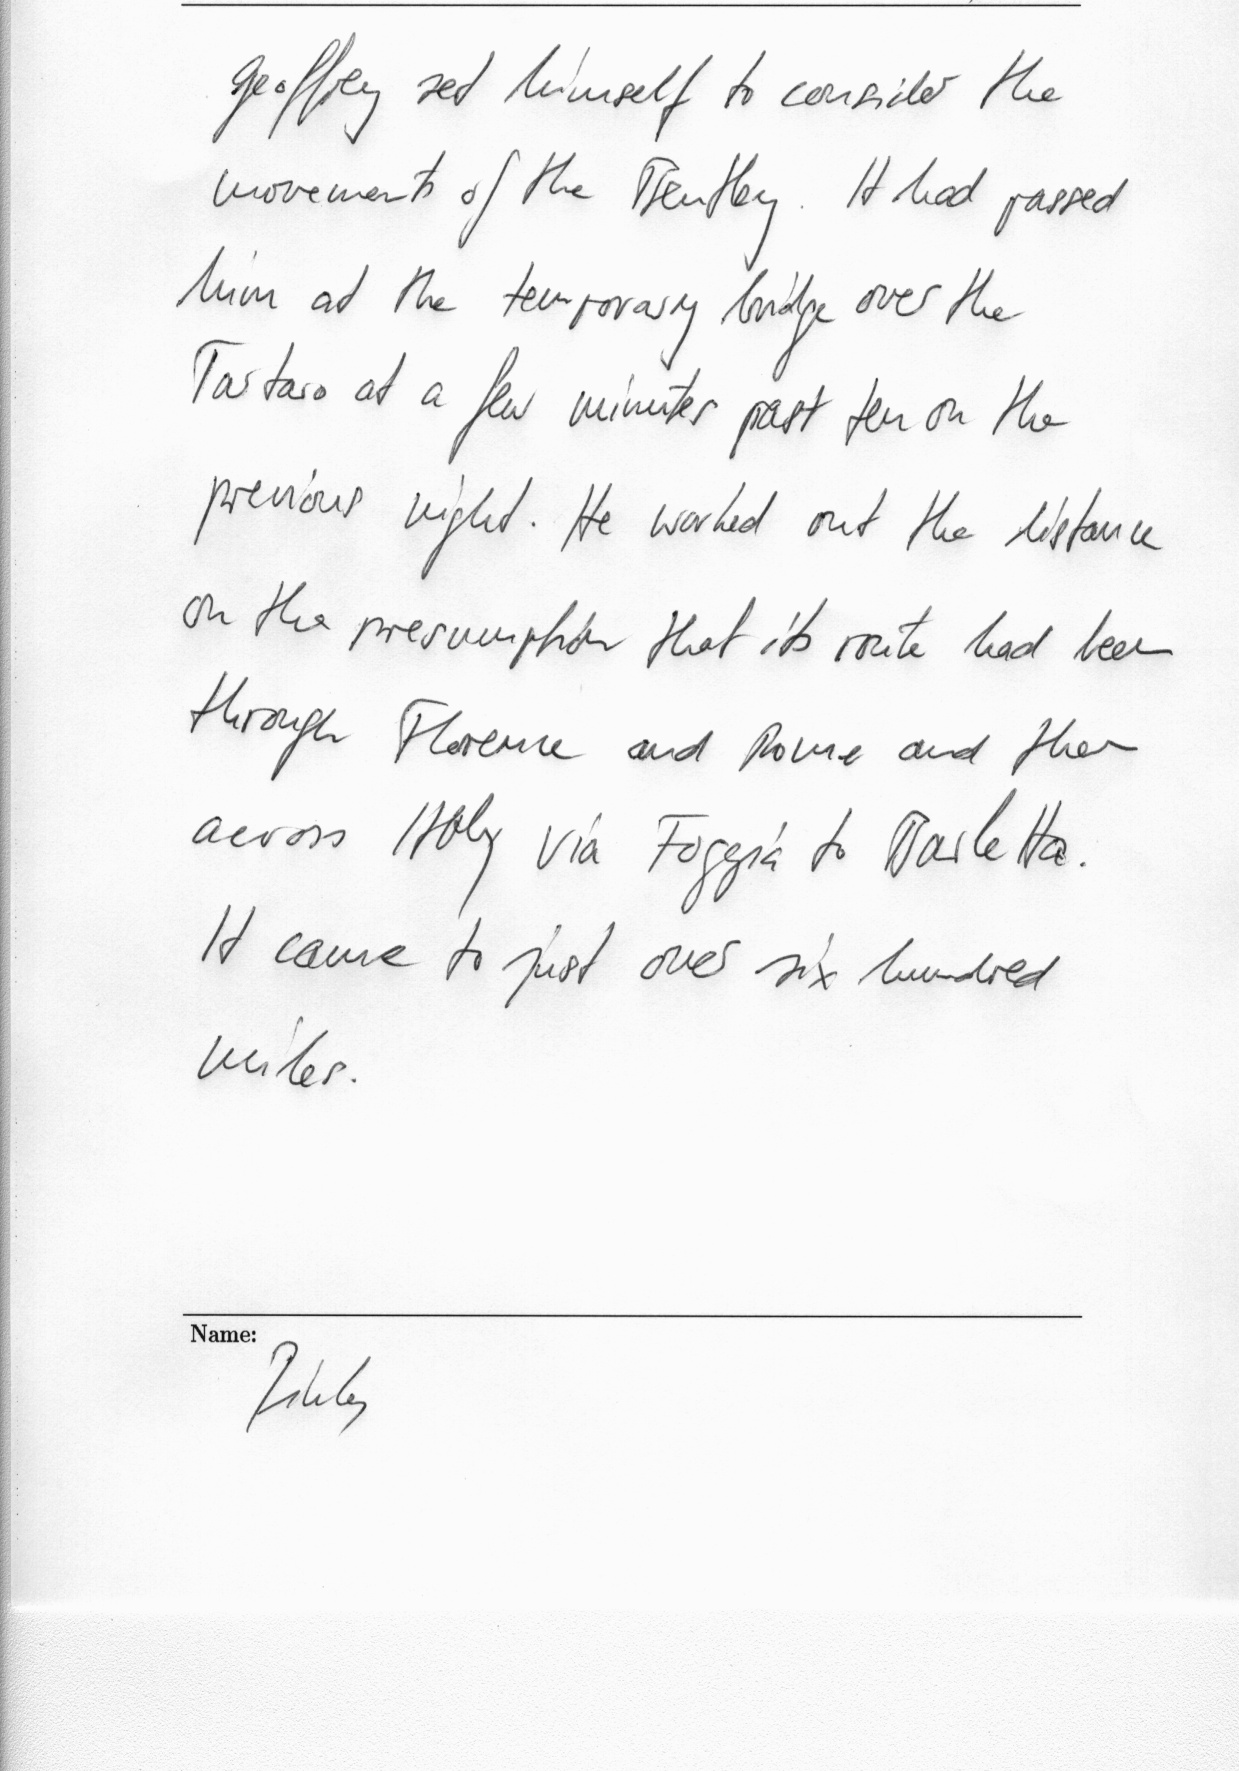 Geoffrey set himself to consider the
movements of the Bentley. It had passed
him at the temporary bridge over the
Tartaro at a few minutes past ten on the
previous night. He worked out the distance
on the presumption that its route had been
through Florence and Rome and then
across Italy via Foggia to Barletta.
It came to just over six hundred
miles.
Name: